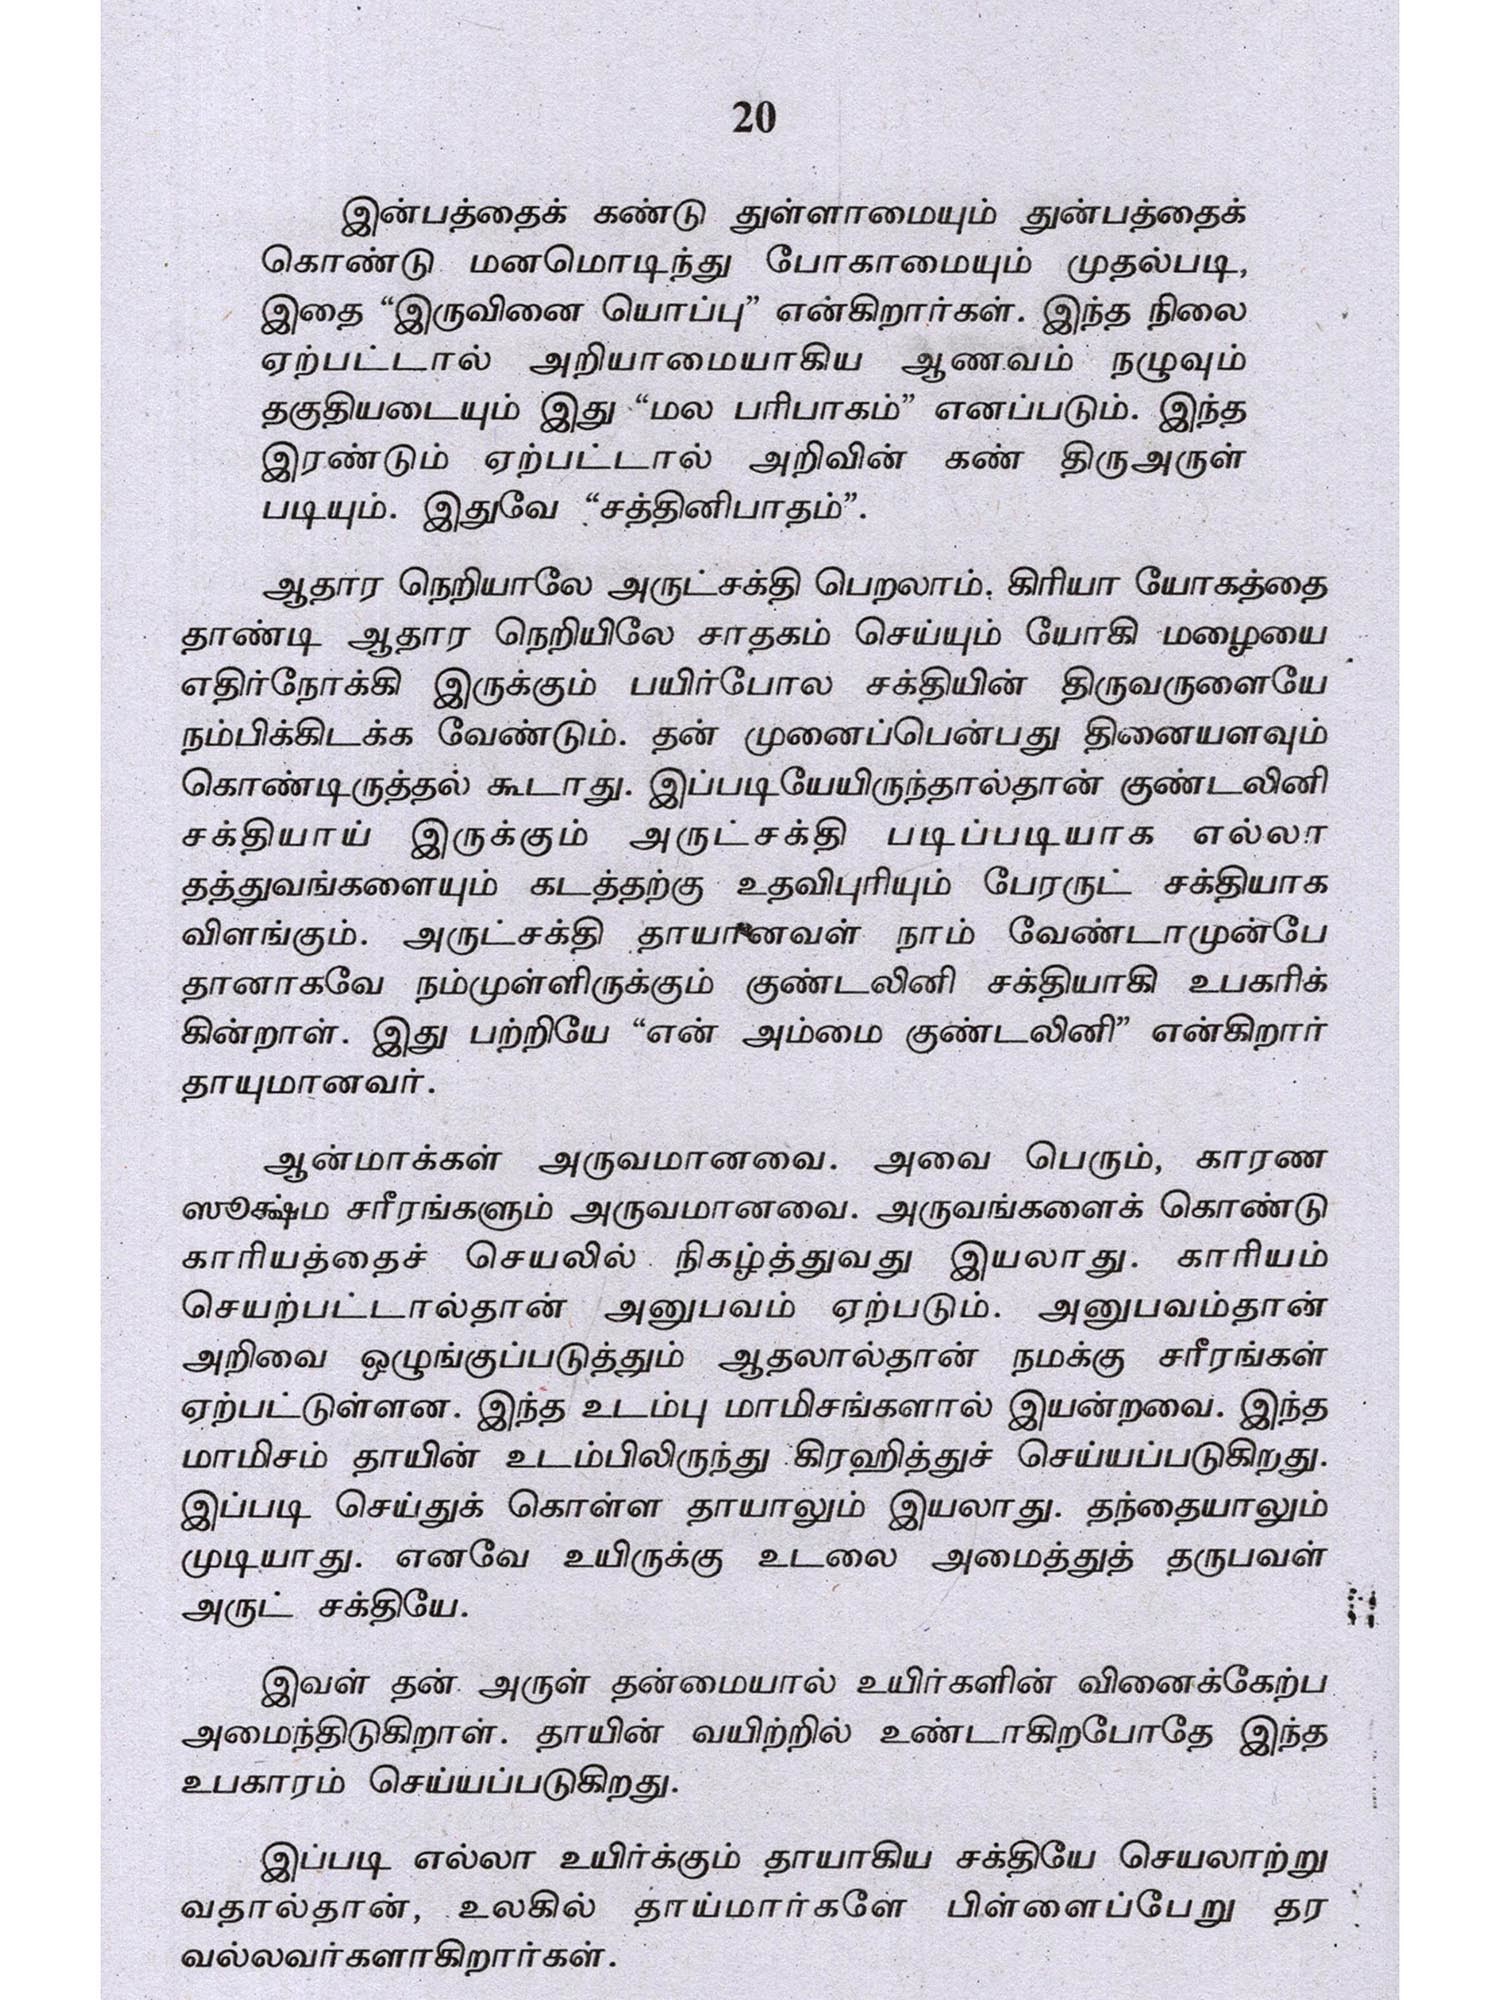 20
இன்பத்தைக் கண்டு துள்ளாமையும் துன்பத்தைக்
கொண்டு மனமொடிந்து போகாமையும் முதல்படி,
இதை “இருவினை யொப்பு” என்கிறார்கள். இந்த நிலை
ஏற்பட்டால் அறியாமையாகிய ஆணவம் நழுவும்
தகுதியடையும் இது “மல பரிபாகம்” எனப்படும். இந்த
இரண்டும் ஏற்பட்டால் அறிவின் கண் திருஅருள்
படியும். இதுவே “சத்தினிபாதம்”.
ஆதார நெறியாலே அருட்சக்தி பெறலாம். கிரியா யோகத்தை
தாண்டி ஆதார நெறியிலே சாதகம் செய்யும் யோகி மழையை
எதிர்நோக்கி இருக்கும் பயிர்போல சக்தியின் திருவருளையே
நம்பிக்கிடக்க வேண்டும். தன் முனைப்பென்பது தினையளவும்
கொண்டிருத்தல் கூடாது. இப்படியேயிருந்தால்தான் குண்டலினி
சக்தியாய் இருக்கும் அருட்சக்தி படிப்படியாக எல்லா
தத்துவங்களையும் கடத்தற்கு உதவிபுரியும் பேரருட் சக்தியாக
விளங்கும். அருட்சக்தி தாயானவள் நாம் வேண்டாமுன்பே
தானாகவே நம்முள்ளிருக்கும் குண்டலினி சக்தியாகி உபகரிக்
கின்றாள். இது பற்றியே “என் அம்மை குண்டலினி” என்கிறார்
தாயுமானவர்.
ஆன்மாக்கள் அருவமானவை. அவை பெரும், காரண
ஸூக்ஷ்ம சரீரங்களும் அருவமானவை. அருவங்களைக் கொண்டு
காரியத்தைச் செயலில் நிகழ்த்துவது இயலாது. காரியம்
செயற்பட்டால்தான் அனுபவம் ஏற்படும். அனுபவம்தான்
அறிவை ஒழுங்குப்படுத்தும் ஆதலால்தான் நமக்கு சரீரங்கள்
ஏற்பட்டுள்ளன. இந்த உடம்பு மாமிசங்களால் இயன்றவை. இந்த
மாமிசம் தாயின் உடம்பிலிருந்து கிரஹித்துச் செய்யப்படுகிறது.
இப்படி செய்துக் கொள்ள தாயாலும் இயலாது. தந்தையாலும்
முடியாது. எனவே உயிருக்கு உடலை அமைத்துத் தருபவள்
அருட் சக்தியே.
இவள் தன் அருள் தன்மையால் உயிர்களின் வினைக்கேற்ப
அமைந்திடுகிறாள். தாயின் வயிற்றில் உண்டாகிறபோதே இந்த
உபகாரம் செய்யப்படுகிறது.
இப்படி எல்லா உயிர்க்கும் தாயாகிய சக்தியே செயலாற்று
வதால்தான், உலகில் தாய்மார்களே பிள்ளைப்பேறு தர
வல்லவர்களாகிறார்கள்.